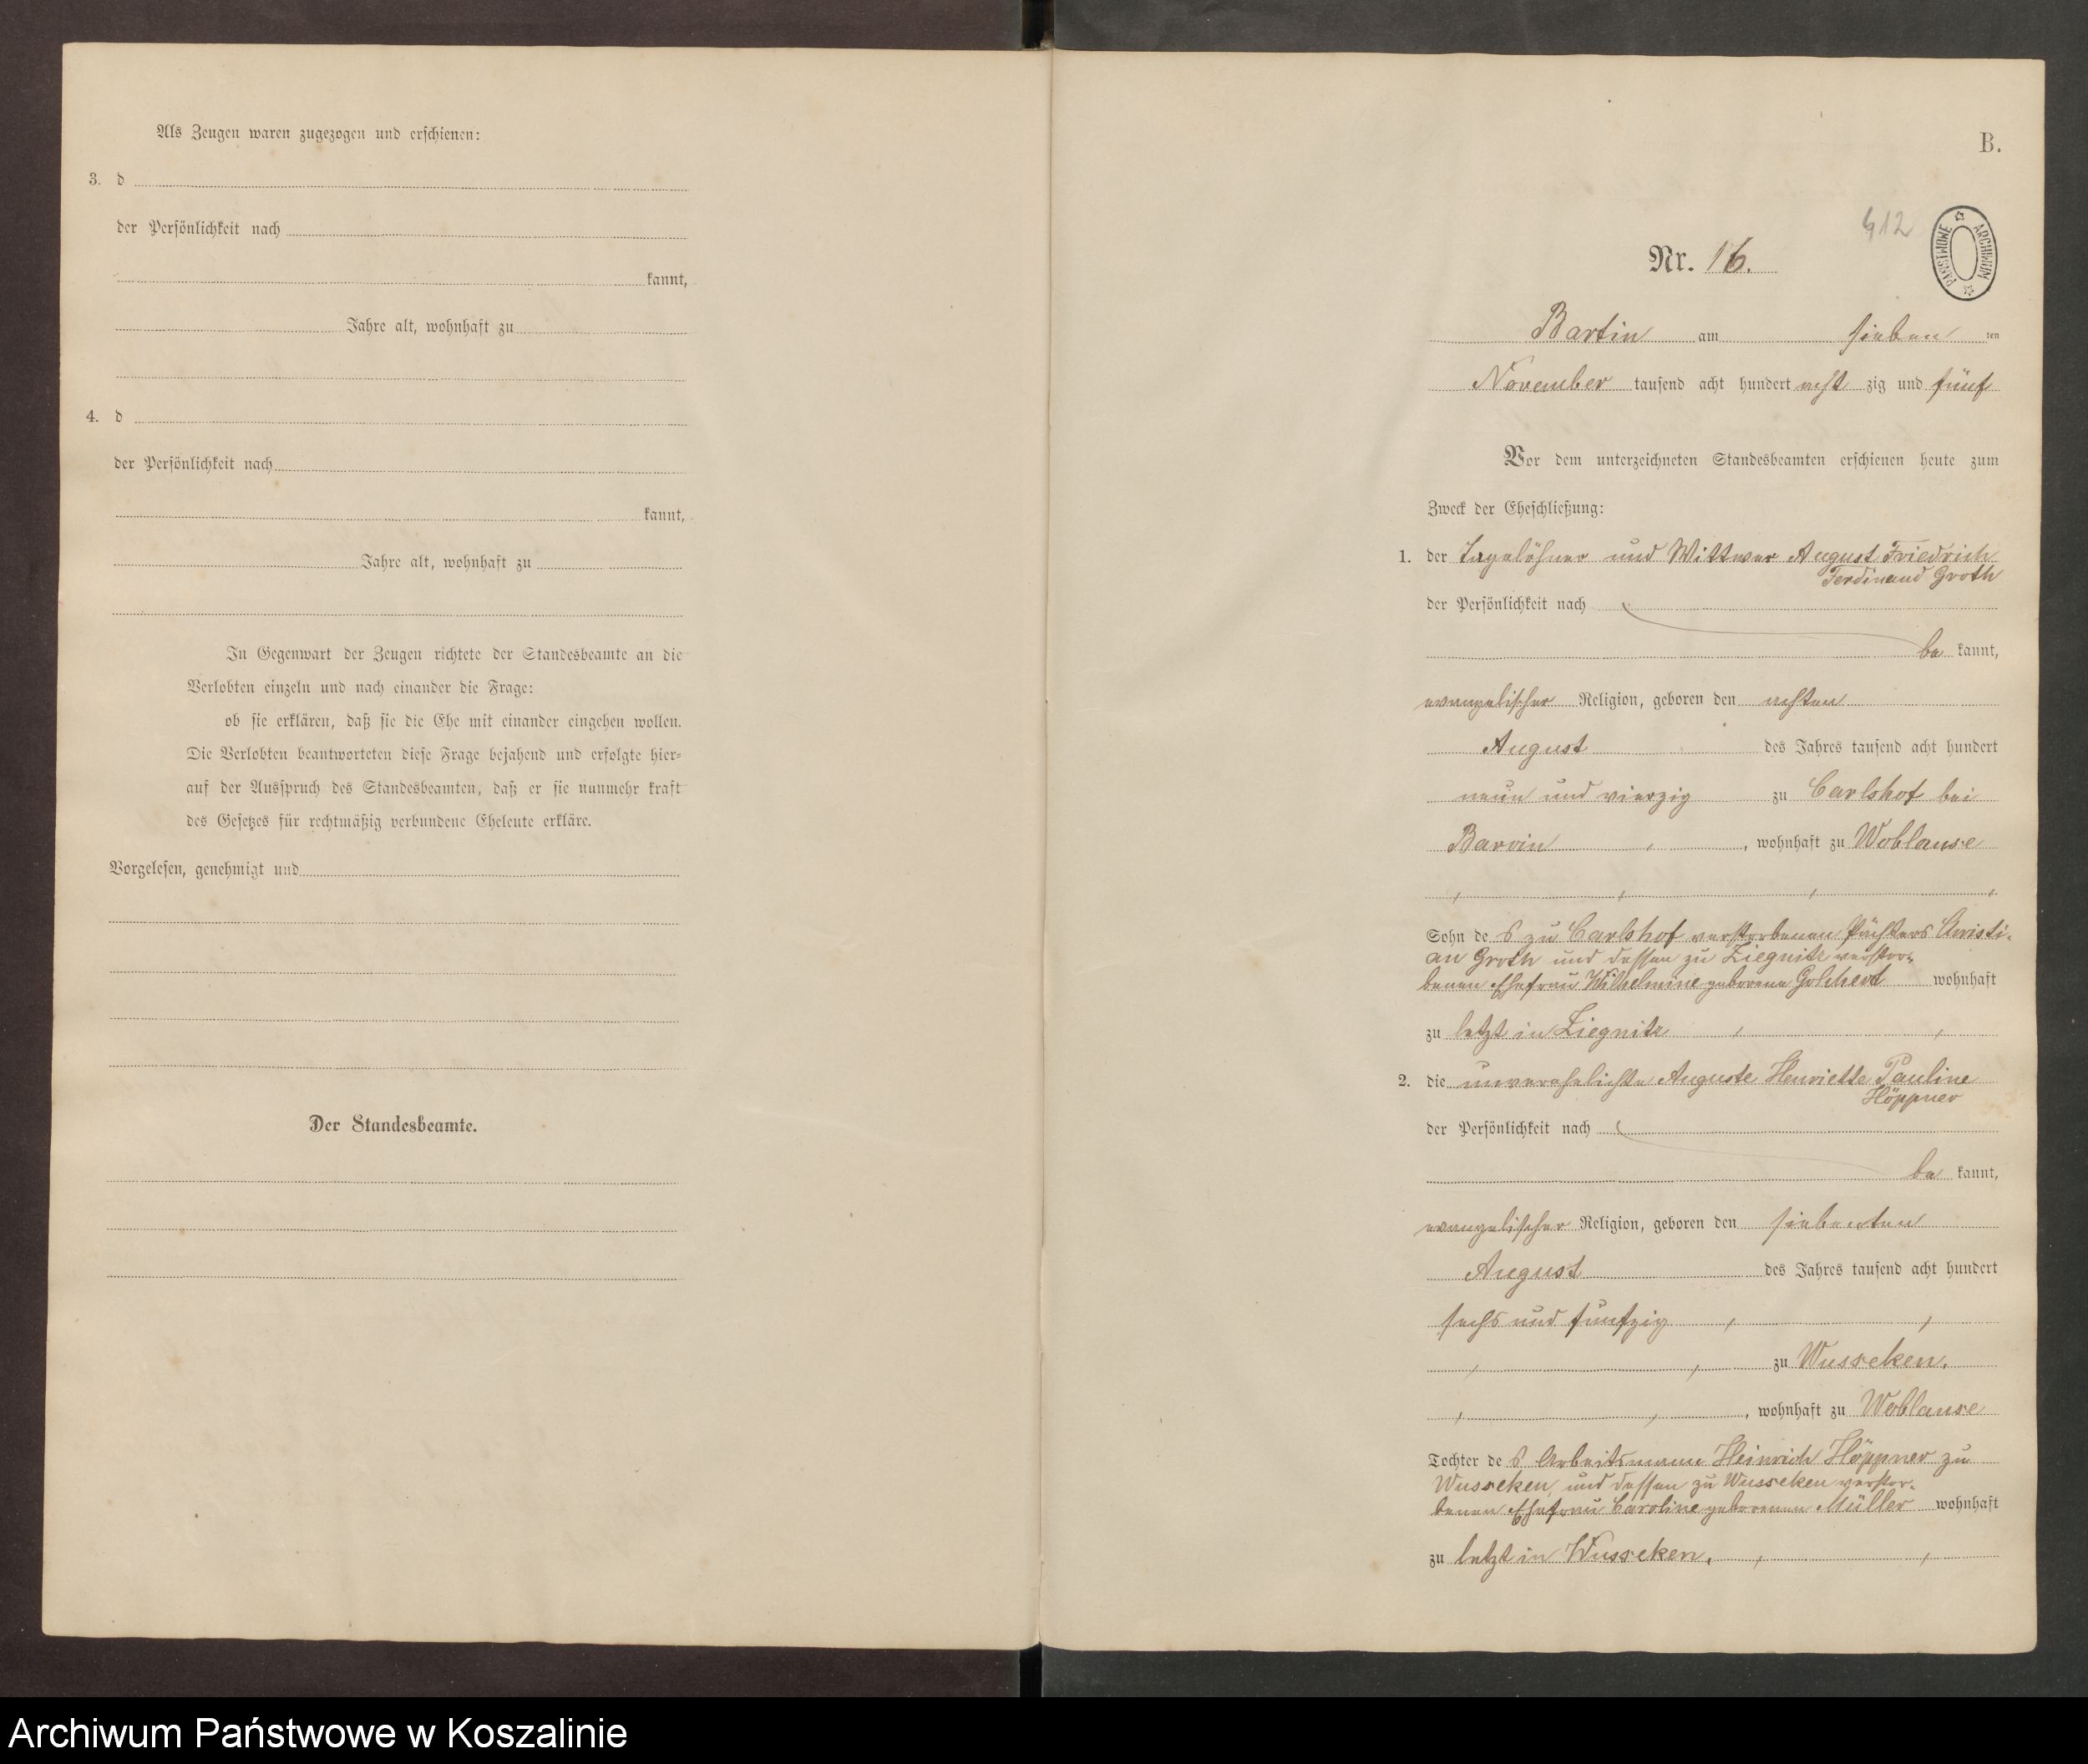 Als Zeugen waren zugezogen und erschienen:
3. d
der Persönlichkeit nach
kannt,
Jahre alt, wohnhaft zu
4. d
der Persönlichkeit nach
kannt,
Jahre alt, wohnhaft zu
In Gegenwart der Zeugen richtete der Standesbeamte an die
Verlobten einzeln und nach einander die Frage:
ob sie erklären, daß sie die Ehe mit einander eingehen wollen.
Die Verlobten beantworteten diese Frage bejahend und erfolgte hier-
auf der Ausspruch des Standesbeamten, daß er sie nunmehr kraft
des Gesetzes für rechtmäßig verbundene Eheleute erkläre.
Vorgelesen, genehmigt und
Der Standesbeamte.
B.
412
ARCHIWUM PAŃSTWOWE
Nr. 16.
Bartin am sieben ten
November tausend acht hundert acht zig und fünf
Vor dem unterzeichneten Standesbeamten erschienen heute zum
Zweck der Eheschließung:
1. der Tagelöhner und Wittwer August Friedrich
Ferdinand Groth
der Persönlichkeit nach
be kannt,
evangelischer Religion, geboren den achten
August des Jahres tausend acht hundert
neun und vierzig zu Carlshof bei
Barvin, wohnhaft zu Woblanse
Sohn de s zu Carlshof verstorbenen Pächters Christi-
an Groth und dessen zu Ziegnitz verstor-
benen Ehefrau Wilhelmine geborene wohnhaft
zu letzt in Ziegnitz
2. die unverehelichte Auguste Henriette Pauline
Höppner
der Persönlichkeit nach
be kannt,
evangelischer Religion, geboren den siebenten
August des Jahres tausend acht hundert
sechs und fünfzig
zu Wusseken.
, wohnhaft zu Woblanse
Tochter de s Arbeitsmann Heinrich Höppner zu
Wusseken, und dessen zu Wusseken verstor-
benen Ehefrau Caroline geborenen Müller wohnhaft
zu letzt in Wusseken.
Archiwum Państwowe w Koszalinie